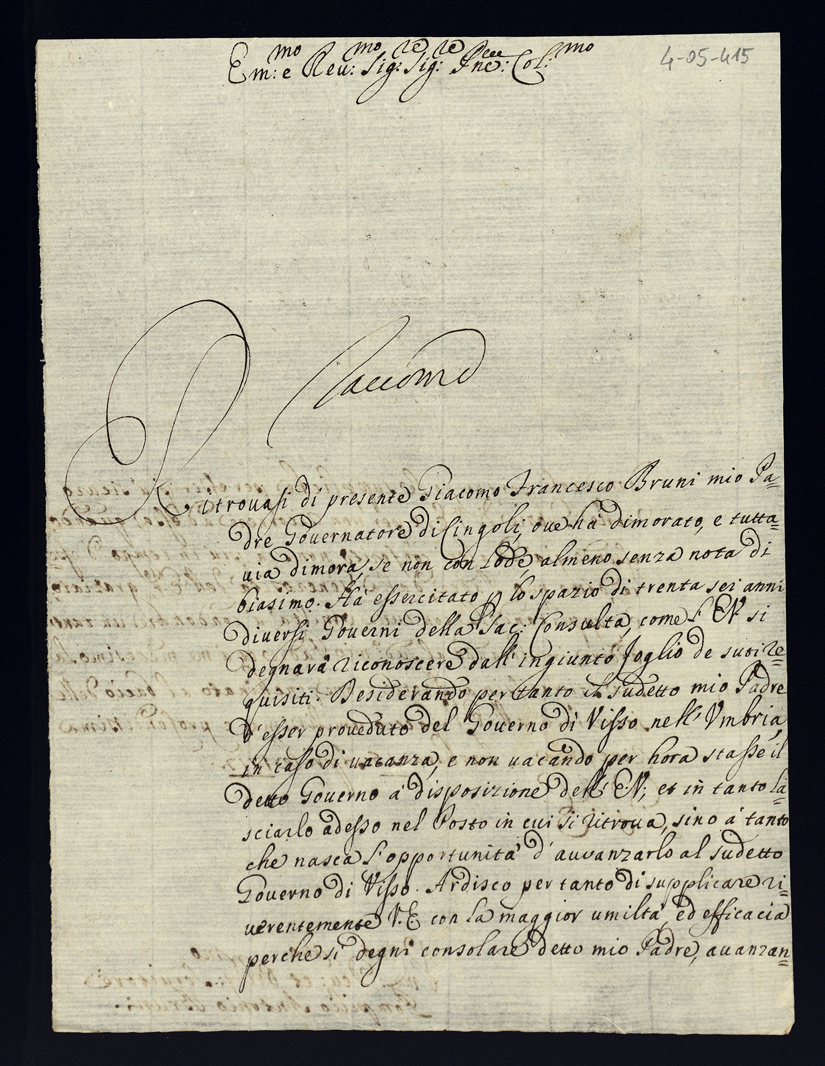 Em:mo e Reu:mo Sig:re Sig:re Pne: Col:mo
4-05-415
Giacomo
Ritrouasi di presente Giacomo Francesco Bruni mio Pa=
dre Gouernatore di Cingoli, oue há dimorato, e tutta=
uia dimora, se non con Lode almeno senza nota di
biasimo. Há essercitato p lo spazio di trenta sei anni
diuersi Gouerni della Sac: Consulta, come l'EV si
degnará riconoscere dall'ingiunto foglio de suoi re=
quisiti. Desiderando per tanto il sudetto mio Padre
d'esser proueduto del Gouerno di Visso nell'Vmbria,
in caso di uacanza, e non uacando per hora stasse il
detto Gouerno á disposizione dell'EV, et in tanto la=
sciarlo adesso nel Posto in cui si ritroua, sino á tanto
che nasca l'opportunitá d'auuanzarlo al sudetto
Gouerno di Visso. Ardisco per tanto di supplicare ri=
uerentemente V.E con la maggior umiltá, ed efficacia
perche si degni consolare detto mio Padre, auanzan=